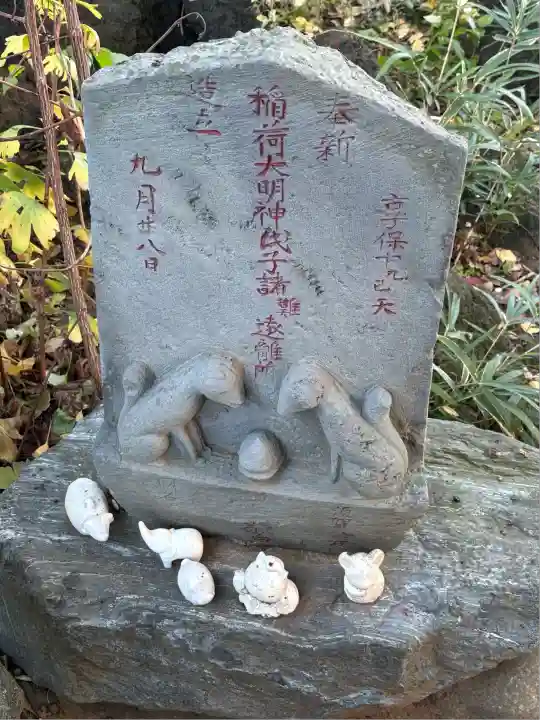 奉新
造立
稲荷大明神氏子諸難遠離所
享保十九巳天
九月廿八日